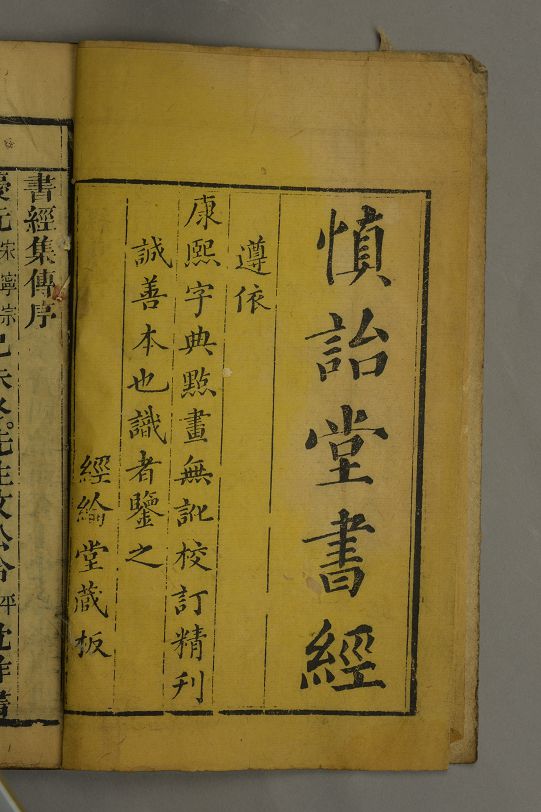 慎詒堂書經
遵依
康熙字典點畫無訛校訂精刋
誠善本也識者鑒之
經綸堂藏板
書經集傳序
慶元宋寧宗己未冬先生文公令平沈作書